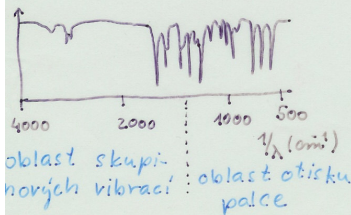 4000 2000 1000 500
1/λ (cm⁻¹)
oblast skupi-
nových vibrací
oblast otisku
palce